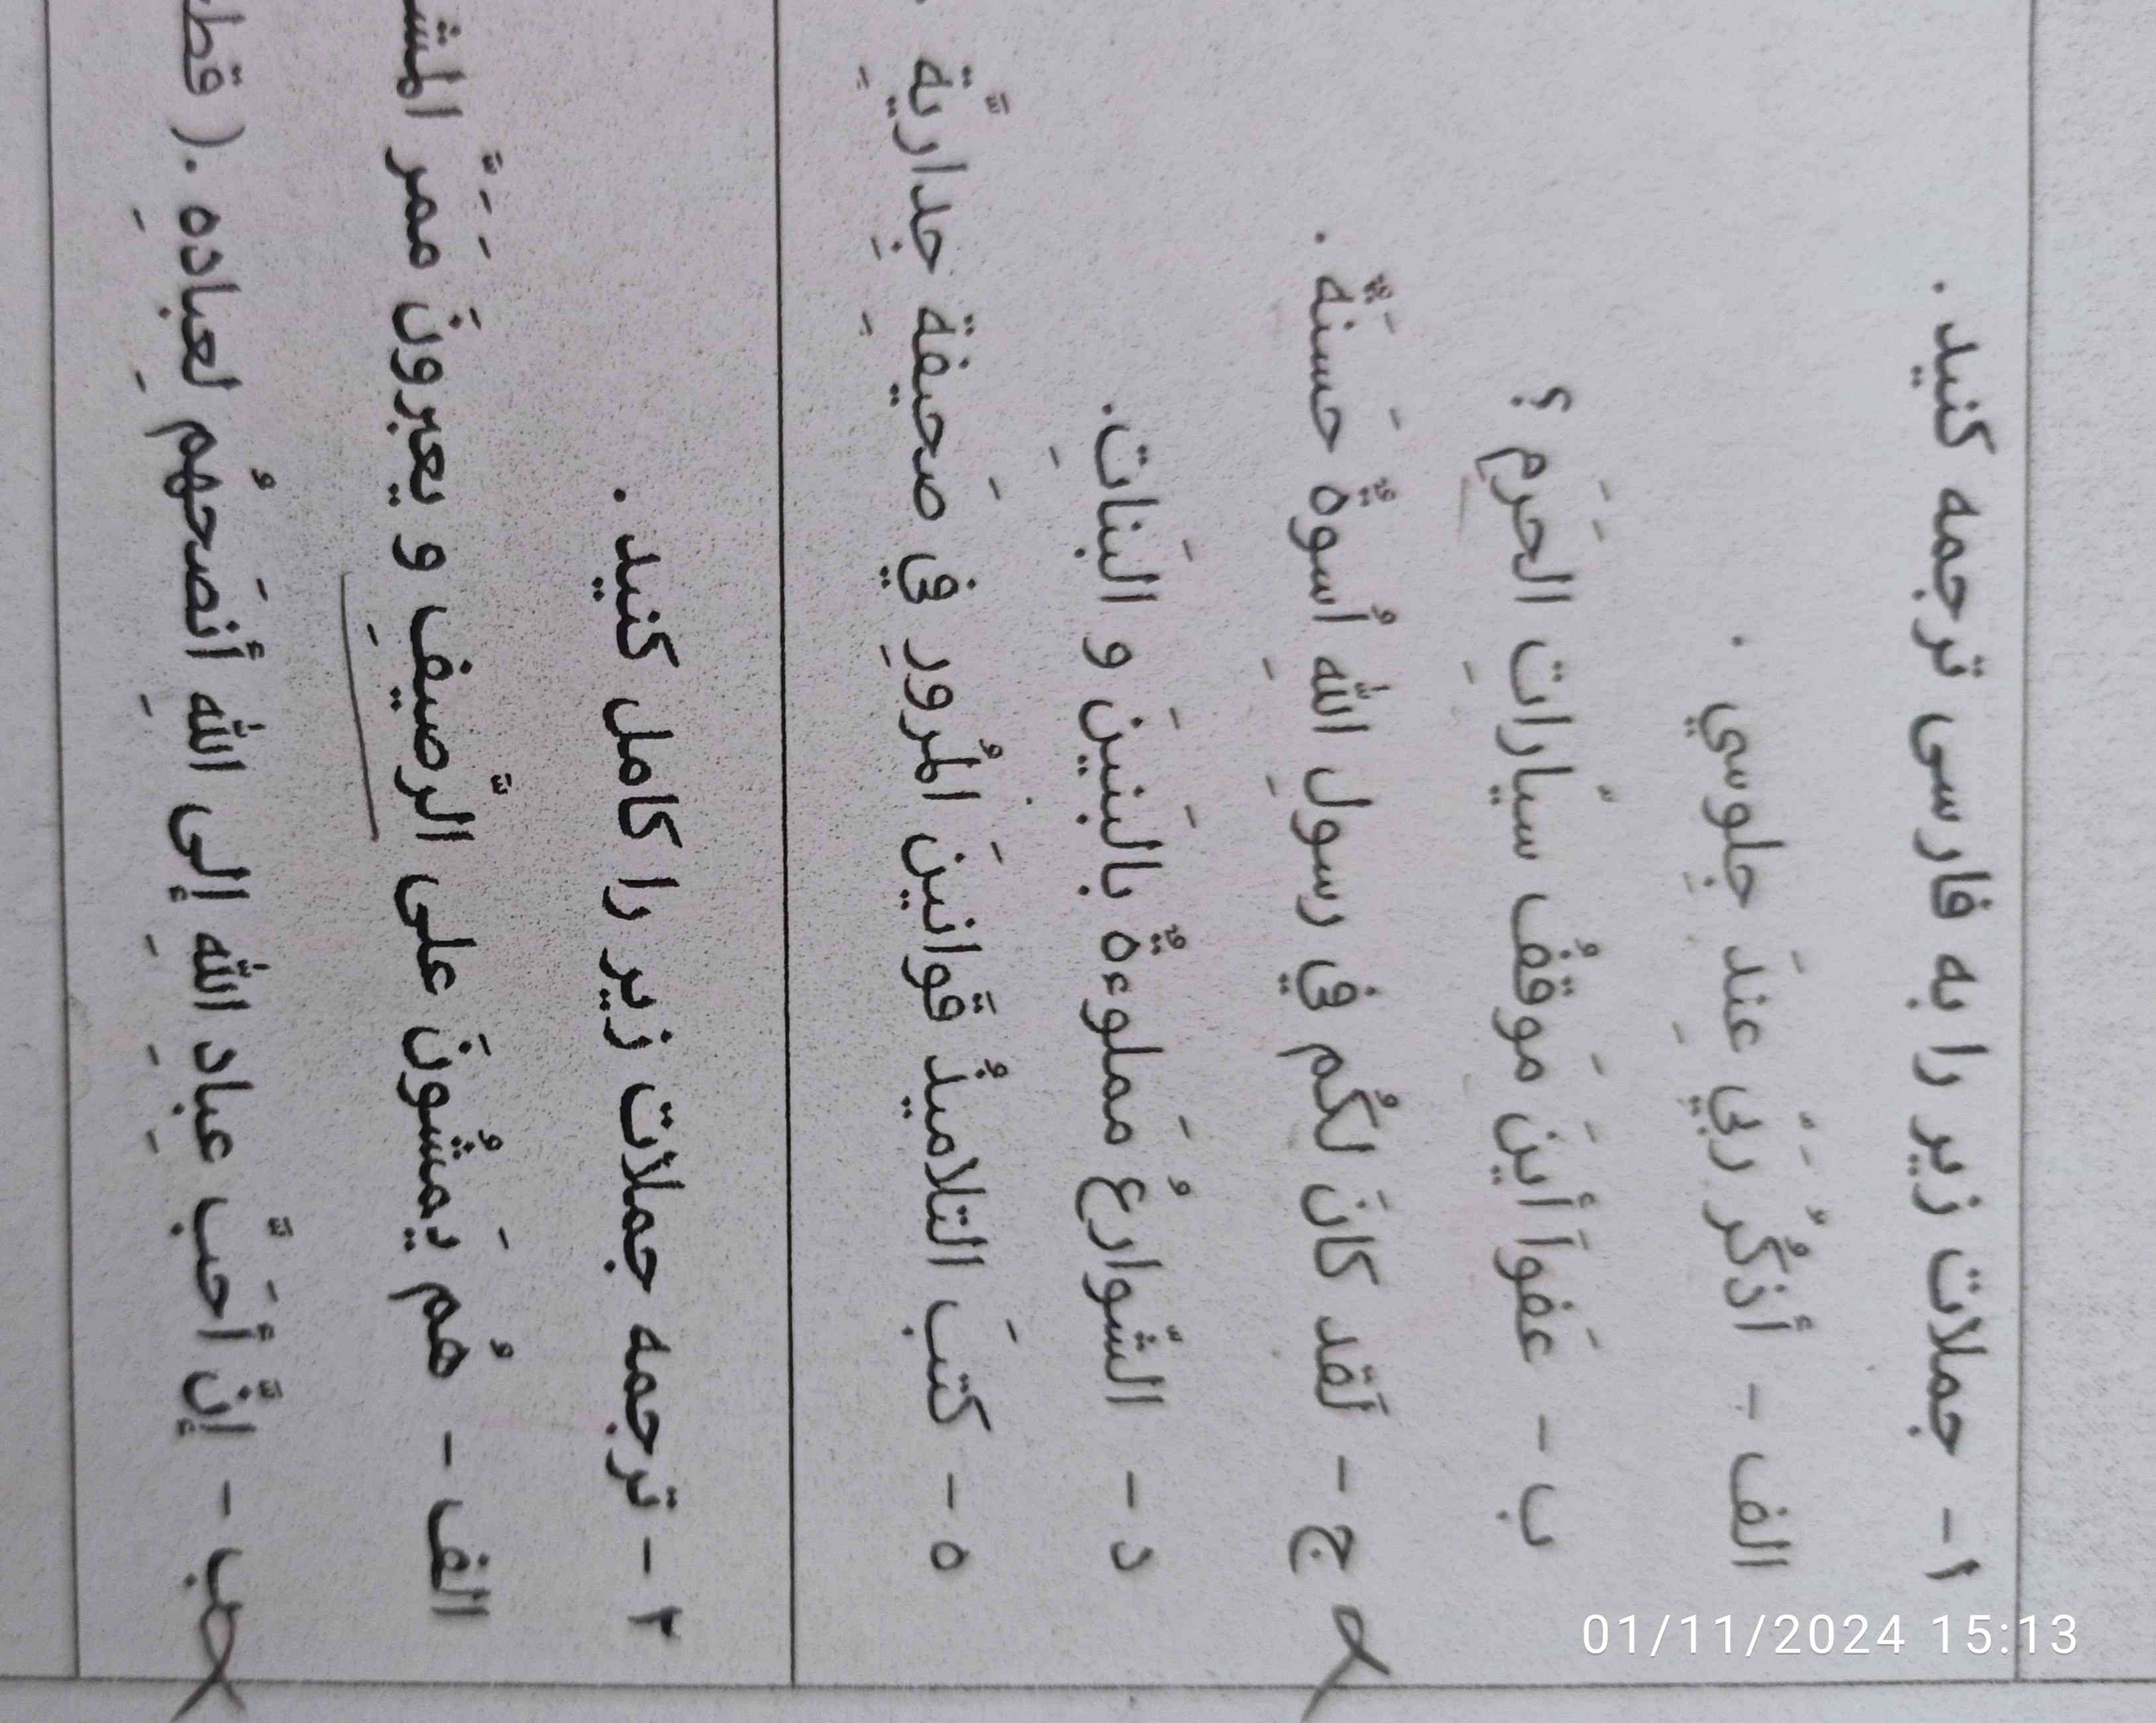 ۱- جملات زیر را به فارسی ترجمه کنید .
الف - أذكُر رَبّي عِندَ جِلوسي .
ب - عَفواَ أينَ مَوقفُ سيّاراتِ الحَرَم ؟
ج - لَقد كانَ لكُم في رسولِ اللهِ أُسوةٌ حَسنَةٌ .
د - الشّوارعُ مَملوءةٌ بالبَنينَ و البَناتِ.
ه - كتبَ التلاميذُ قَوانينَ المُرورِ في صَحيفةِ جِداريّةِ .
۲ - ترجمه جملات زیر را کامل کنید .
الف - هُم يَمشُونَ على الرّصيفِ و يعبرونَ مَمَرّ
ب - إنّ أحَبّ عِبادِ اللهِ إلى اللهِ أنصَحُهُم لِعبادهِ . (
01/11/2024 15:13